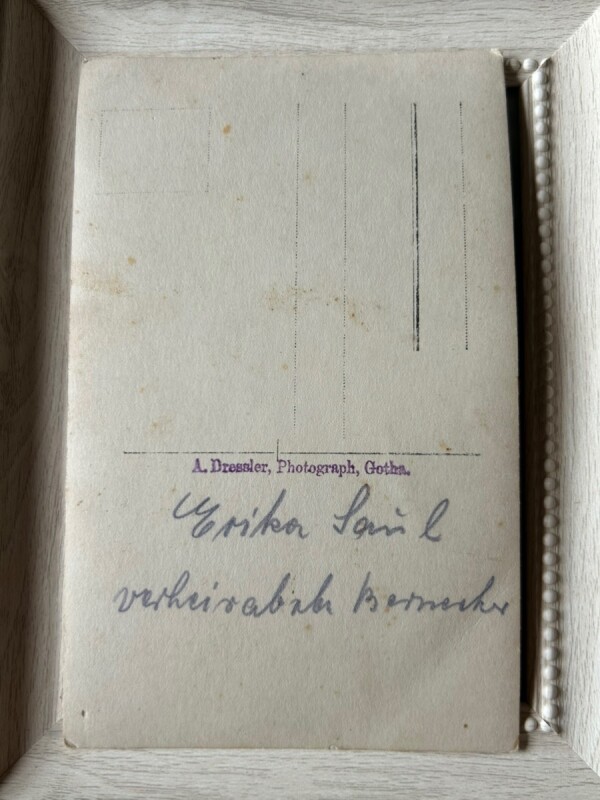 A. Dressler, Photograph, Gotha.
Erika Saul
verheiratete Bernecker